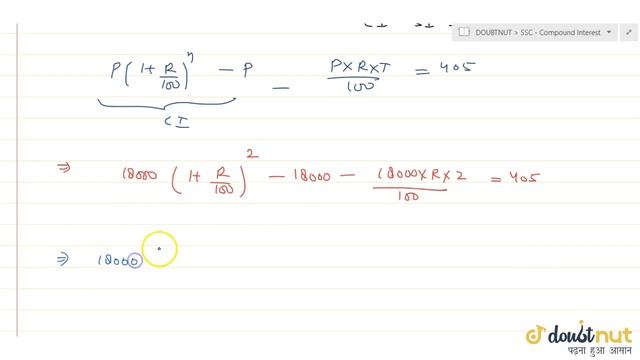 DOUBTNUT > SSC - Compound Interest
P(1+R/100)^n - P - P×R×T/100 = 405
CI
⇒ 18000 (1+R/100)^2 - 18000 - 18000×R×2/100 = 405
⇒ 18000
doubtnut
पढ़ना हुआ आसान